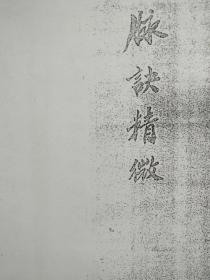 脉訣精微